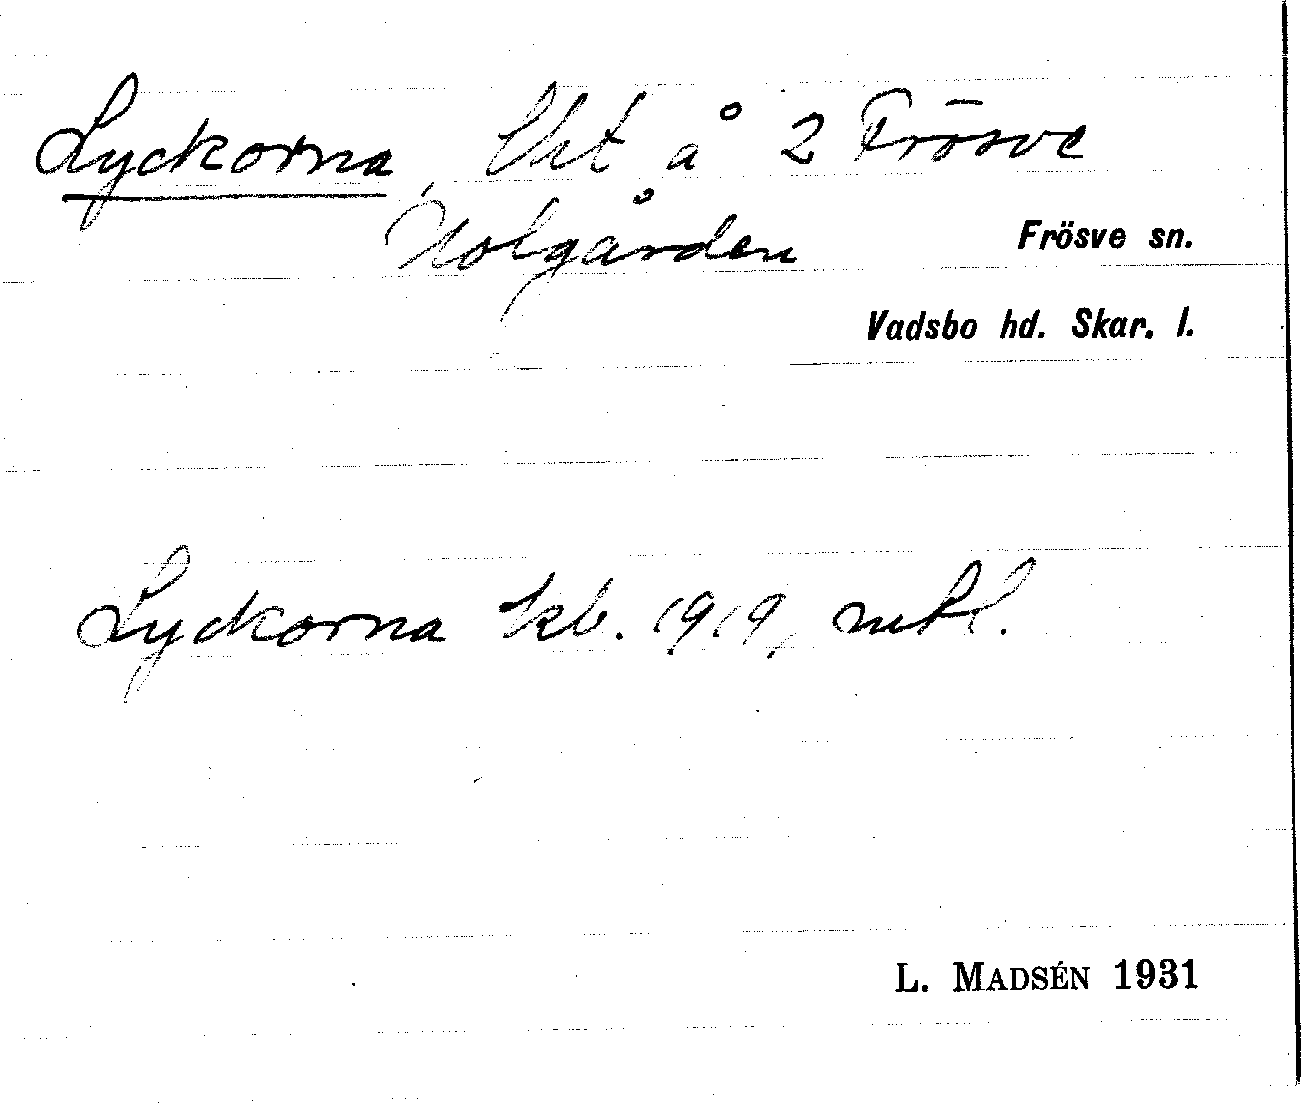 Lyckorna, lht å 2 Frösve
Holgården
Frösve sn.
Vadsbo hd. Skar. l.
Lyckorna kb. 1919, mtl.
L. MADSÉN 1931